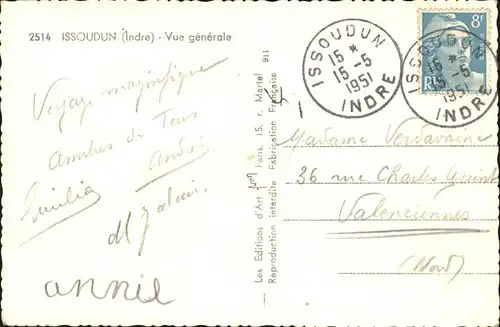 2514 ISSOUDUN (Indre) - Vue générale
Voyage magnifique
Amitiés de Tous
André
Emilia
annie
Les Editions d'Art Yvon Paris, 15, r. Martel 911
Reproduction interdite Fabrication Française
ISSOUDUN
15 *
15-5
1951
INDRE
ISSOUDUN
15 *
15-5
1951
INDRE
8F
Madame Verdavaine
36 rue Charles Quint
Valenciennes
(Nord)